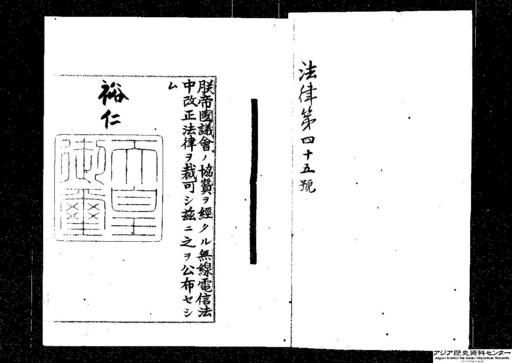 法律第四十五號
朕帝國議會ノ協贊ヲ經タル無線電信法
中改正法律ヲ裁可シ茲ニ之ヲ公布セシ
ム
裕仁
天皇
御璽
アジア歴史資料センター
Japan Center for Asian Historical Records